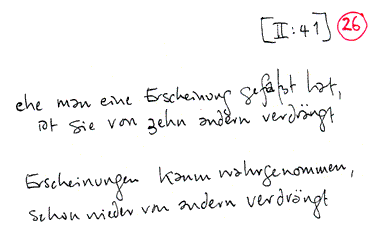 [II:41] 26
ehe man eine Erscheinung gefaßt hat,
ist sie von zehn andern verdrängt
Erscheinungen kaum wahrgenommen,
schon wieder von andern verdrängt